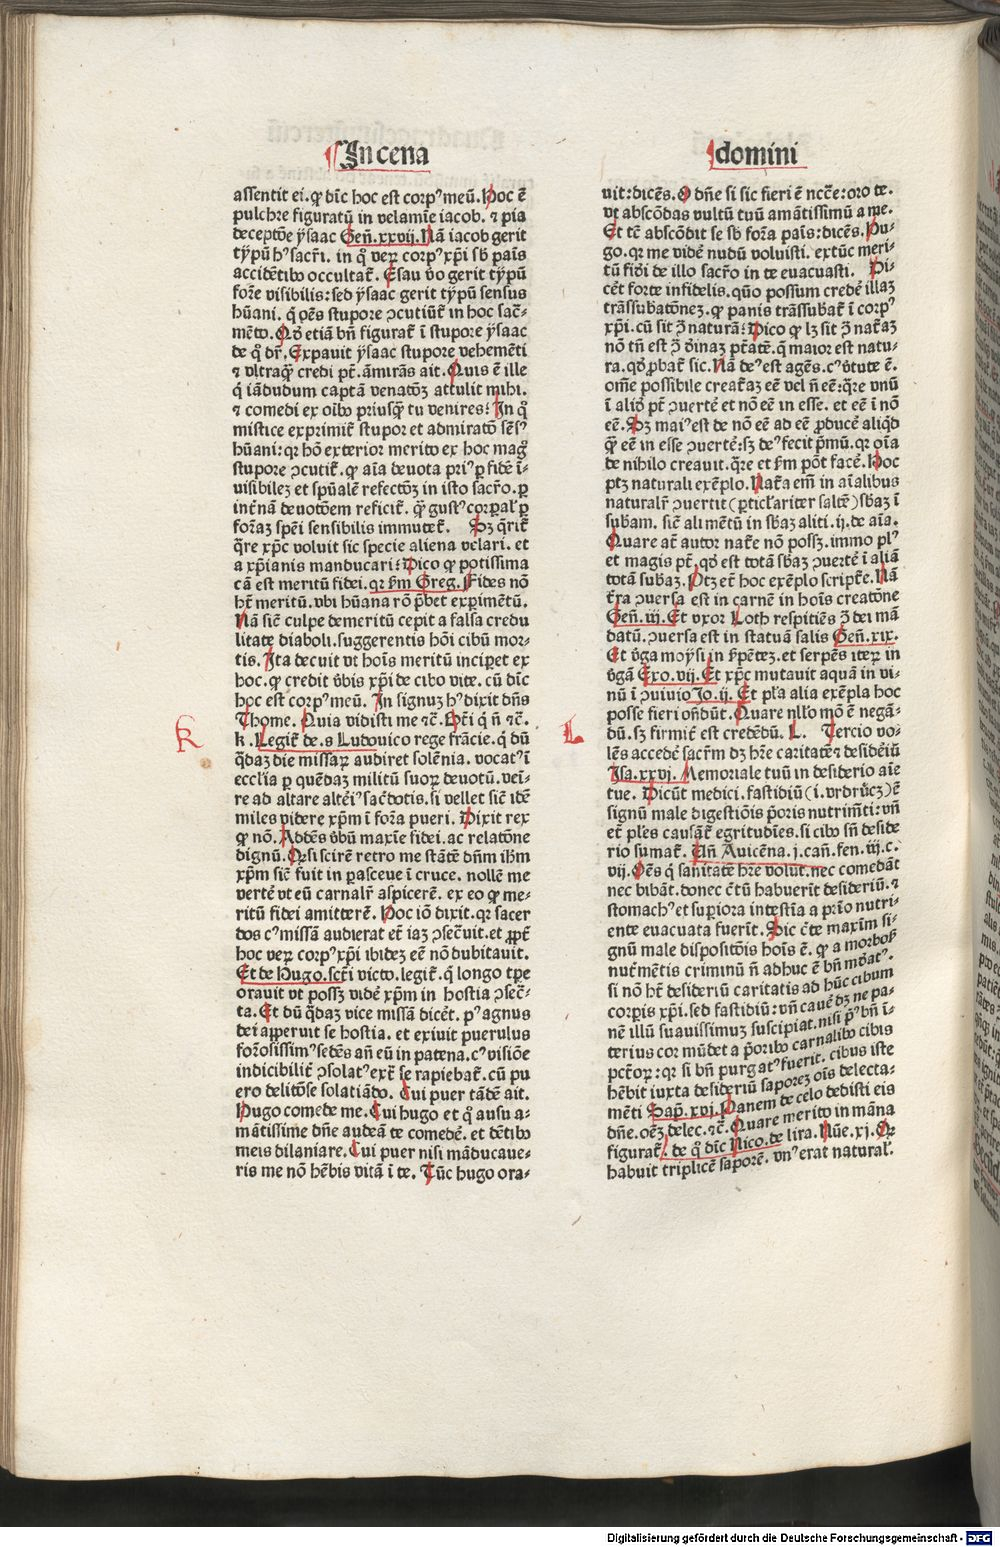 In cena
domini
assentit ei. qꝛ dīc hoc est corpꝰ meū. Hoc ē
pulchre figuratū in velamīe iacob. ⁊ pia
deceptōe ysaac Geñ. xxvij. Nā iacob gerit
typū hꝰ sacrī. in q̊ veꝝ corpꝰ xp̄i sb̄ pa̅is
accidētibꝰ occultat̄. Esau v̊o gerit typū
forē visibilis: sed ysaac gerit typū sensus
hūani. q̄ oēs stupore ꝯcutiūt̄ in hoc sac̄⸗
mēto. Qd̓ etiā bn̄ figurat̄ ī stupore ysaac
de q̊ dr̄. Expauit ysaac stupore vehemēti
⁊ vltraq̄ꝫ credi pt̄. am̄irās ait. Quis ē ille
q̄ iādudum captā venatōꝫ attulit mihi.
⁊ comedi ex oībꝰ priusq̄ꝫ tu venires? In q̊
mistice exprimit̄ stupor et admiratō sēsꝰ
hūani: qꝛ hō exterior merito ex hoc mag̊
stupore ꝯcutit̄. qꝛ aīa deuota priꝰ ꝑ fidē ī⸗
visibileꝫ et spūalē refectōꝫ in isto sacr̄o. ꝑ
int̄nā deuotōem reficit̄. q̄ꝫ gustꝰ corꝑal̓ ꝑ
formaꝫ spēi sensibilis immutet̄. Sꝫ q̄rit̄
q̄re xp̄c voluit sic specie aliena velari. et
a xp̄ianis manducari? Dico qꝛ potissima
cā est meritū fidei. qꝛ ẜm Greg. Fides nō
hꝫ meritū. vbi hūana rō p̄bet exꝑimētū.
Nā siē culpe demeritū cepit a falsa credu
litate diaboli. suggerentis hōi cibū mor⸗
tis. Ita decuit vt hoīs meritū incipet ex
hoc. qꝛ credit v̓bis xp̄i de cibo vite. cū dīc
hoc est corpꝰ meū. In signuꝫ hꝰ dixit dn̄s
Thome. Quia vidisti me ⁊c̄. Bt̄i q̄ ñ ⁊c̄.
K
k. Legit̄ de. s Ludouico rege frācie. q̄ dū
q̇daꝫ die missaꝝ audiret solēnia. vocatꝰ ī
eccl̄ia ꝑ quēdaꝫ militū suoꝝ deuotū. veī⸗
re ad altare alteī̓ sac̓dotis. si vellet siē idē
miles videre xp̄m ī forā pueri. Dixit rex
qꝛ nō. Addēs v̓bū maxīe fidei. ac relatōne
dignū. Qꝛ si scirē retro me stātē dn̄m ihm̄
xp̄m siē fuit in pasceue ī cruce. nollē me
vertē vt eū carnalr̄ aspicerē. ex eo qꝛ me⸗
ritū fidei amitterē. Hoc iō dixit. qꝛ sacer
dos cꝰ missā audierat et̄ iaꝫ ꝯsec̓uit. et ꝓpt̄
hoc veꝝ corpꝰ xp̄i ibideꝫ eē nō dubitauit.
Et de Hugo. sct̄i victo. legit̄. q̄ longo tꝑe
orauit vt possꝫ vidē xp̄m in hostia ꝯsec̄⸗
ta. Et dū q̇daꝫ vice missā dicēt. pꝰ agnus
dei apꝑuit se hostia. et exiuit puerulus
formosissimꝰ sedēs añ eū in patena. cꝰ visiōe
indicibilit̄ ꝯsolatꝰ ext̄ se rapiebat̄. cū pu
ero delitōse solatiādo. Cui puer tādē ait.
Hugo comede me. Cui hugo et q̊ ausu a⸗
mātissime dn̄e audeā te comedē. et dētibꝰ
meis dilaniare. Cui puer nisi māducaue⸗
ris me nō hēbis vitā ī te. Tūc hugo ora⸗
uit: dicēs. O dn̄e si sic fieri ē nccē: oro te.
vt abscōdas vultū tuū amātissimū a me.
Et tē abscōdit se sb̄ forma pa̅is: dicēs. Hu⸗
go. qꝛ me vidē nudū voluisti. extūc meri⸗
tū fidēi de illo sacr̄o in te euacuasti. Di⸗
cēt forte infidelis. quō possum credē illaꝫ
trāssubatōneꝫ. qꝛ panis trāssubat̄ ī corpꝰ
xp̄i. cū sit ꝯ̄ naturā? Dico qꝛ lꝫ sit ꝯ̄ nat̄aꝫ
nō tn̄ est ꝯ̄ d̓inaꝫ pt̄atē. q̄ maior est natu⸗
ra. qd̓ ꝓbat̄ sic. Nā deꝰ est agēs. cꝰ v̓tute ē.
om̄e possibile creat̄aꝫ eē vel ñ eē: q̄re vnū
ī aliḋ pt̄ ꝯuertē et nō eē in esse. et eē ī nō
eē. Sꝫ maiꝰ est de nō eē ad eē ꝓducē aliqḋ
q̄ꝫ eē in esse ꝯuertē: sꝫ deꝰ fecit p̄mū. qꝛ oīa
de nihilo creauit. q̄re et ẜm pōt facē. Hoc
ptꝫ naturali exēplo. Nat̄a em̄ in aīalibus
naturalr̄ ꝯuertit (ꝑticl̓ariter saltē) sb̄aꝫ ī
subam. siē ali mētū in sb̄aꝫ aliti. ij. de aīa.
Quare at̄ autor nat̄e nō possꝫ. immo plꝰ
et magis pt̄. qd̓ est totā sb̄aꝫ ꝯuertē ī aliā
totā subaꝫ. Ptꝫ et̄ hoc exēplo script̄e. Nā
t̄ra ꝯuersa est in carnē in hoīs creatōne
Geñ. iij. Et vxor Loth respitiēs ꝯ̄ dei mā
datū. ꝯuersa est in statuā salis Geñ. xix.
Et v̓ga moysi in ẜpēteꝫ. et serpēs iteꝝ in
v̓gā Exo. vij. Et xp̄c mutauit aquā in vi⸗
nū ī ꝯuiuio Jo. ij. Et pl̓a alia exēpla hoc
posse fieri on̄dūt. Quare nll̓o mō ē negā⸗
dū. sꝫ firmit̄ est credēdū. L. Tercio vo⸗
L
lēs accedē sacr̄m dꝫ hr̄e caritatē ⁊ desideriū
Isa. xxvj. Memoriale tuū in desiderio aīe
tue. Dicūt medici. fastidiū (i. vrdrúcz) ē
signū male digestiōis p̄oris nutrimēti: vn̄
et̄ ples causat̄ egritudīes. si cibꝰ sn̄ deside
rio sumat̄. Vn̄ Auicēna. j. cañ. fen. iij. c.
vij. Oēs q̄ sanitatē hr̄e volūt. nec comedāt
nec bibāt. donec c̄tū habuerīt desideriū. ⁊
stomachꝰ et suꝑiora intestīa a prīo nutri⸗
ente euacuata fuerīt. Sic c̄te maxīm si⸗
gnū male dispositōis hoīs ē. qꝛ a morbosꝫ
nut̄mētis criminū ñ adhuc ē bn̄ mūdatꝰ.
si nō hꝫ desideriū caritatis ad hūc cibum
corꝑis xp̄i. sed fastidiū: vn̄ cauē dꝫ ne pa⸗
nē illū suauissimuꝫ suscipiat. nisi pꝰ bn̄ ī⸗
terius cor mūdet a p̄oribꝰ carnalibꝰ cibis
pct̄oꝝ: qꝛ si bn̄ purgatꝰ fuerit. cibus iste
hēbit iuxta desideriū saporeꝫ oīs delecta⸗
mēti Sap. xvj. Panem de celo dedisti eis
dn̄e. oēꝫ delec. ⁊c̄. Quare merito in māna
figurat̄. de q̊ dīc Nico. de lira. Nūe. xj. Qꝛ
habuit triplicē saporē. vnꝰ erat natural̓.
Digitalisierung gefördert durch die Deutsche Forschungsgemeinschaft - DFG